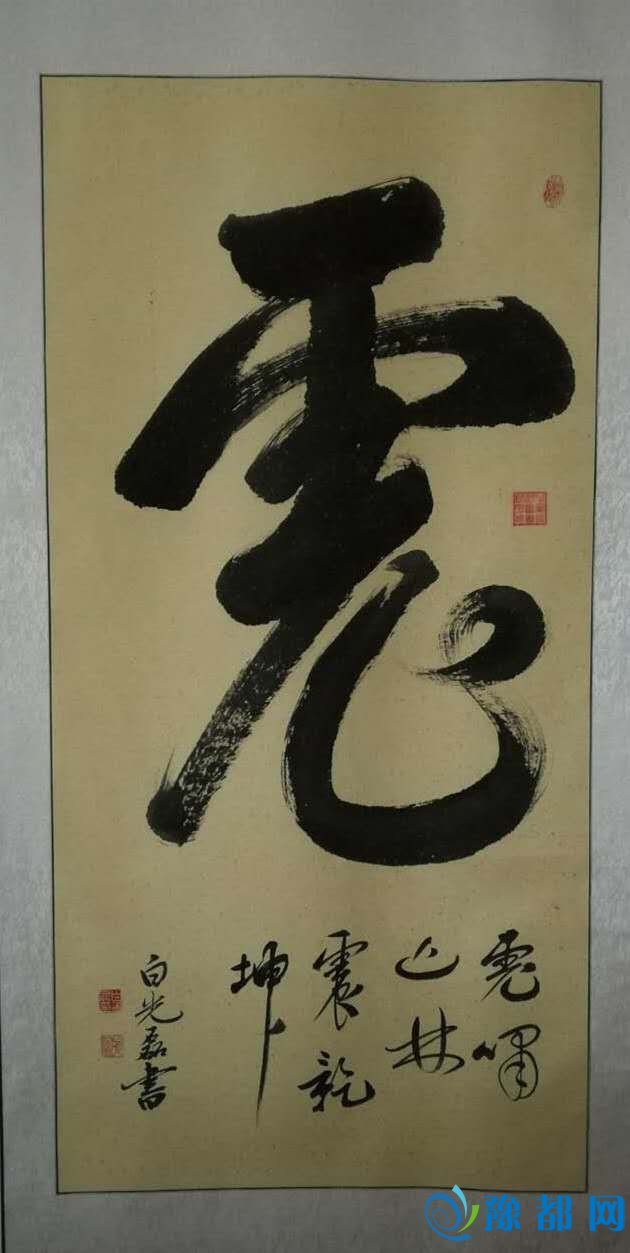 虎
虎啸
山林
震乾
坤
白光磊書
豫都网